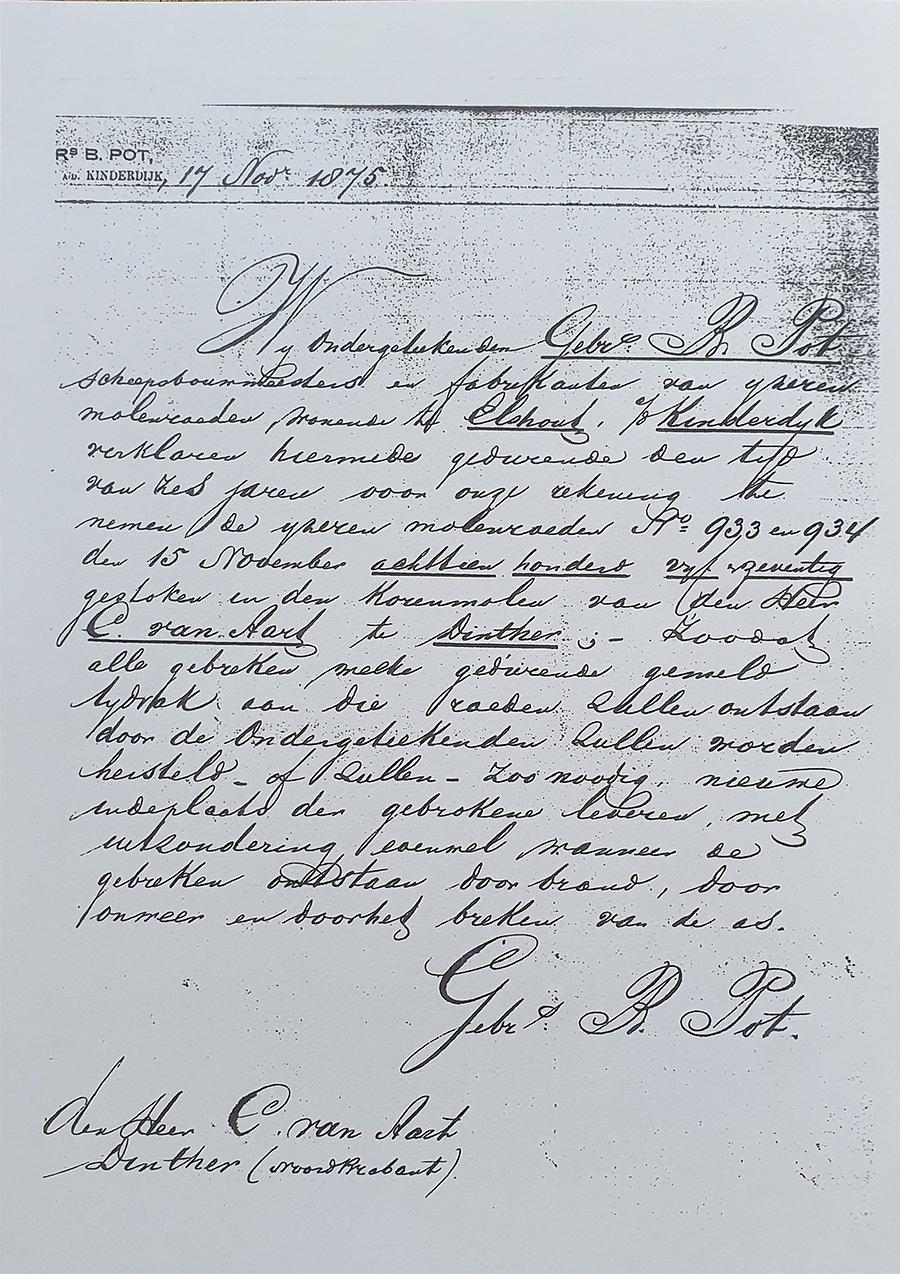 Rs B. POT,
A/D. KINDERDIJK, 17 Novr 1875.
Wy Ondergeteekenden Gebrs. B. Pot
scheepsbouwmeesters en fabrikanten van yzeren
molenroeden wonende te Elshout, a/d Kinderdyk
verklaren hiermede gedurende den tijd
van zes jaren voor onze rekening te
nemen de yzeren molenroeden No 933 en 934
den 15 November achttien honderd vyf en zeventig
gestoken in den Korenmolen van den Heer
C. van Aart te Dinther ;- Zoodat
alle gebreken welke gedurende gemeld
tydvak aan die roeden zullen ontstaan
door de Ondergeteekenden zullen worden
hersteld - of zullen - zoo noodig, nieuwe
indeplaats der gebrokene leveren, met
uitzondering evenwel wanneer de
gebreken ontstaan door brand, door
onweer en door het breken van de as.
Gebrs. B. Pot.
den Heer C. van Aart
Dinther (Noordbrabant).